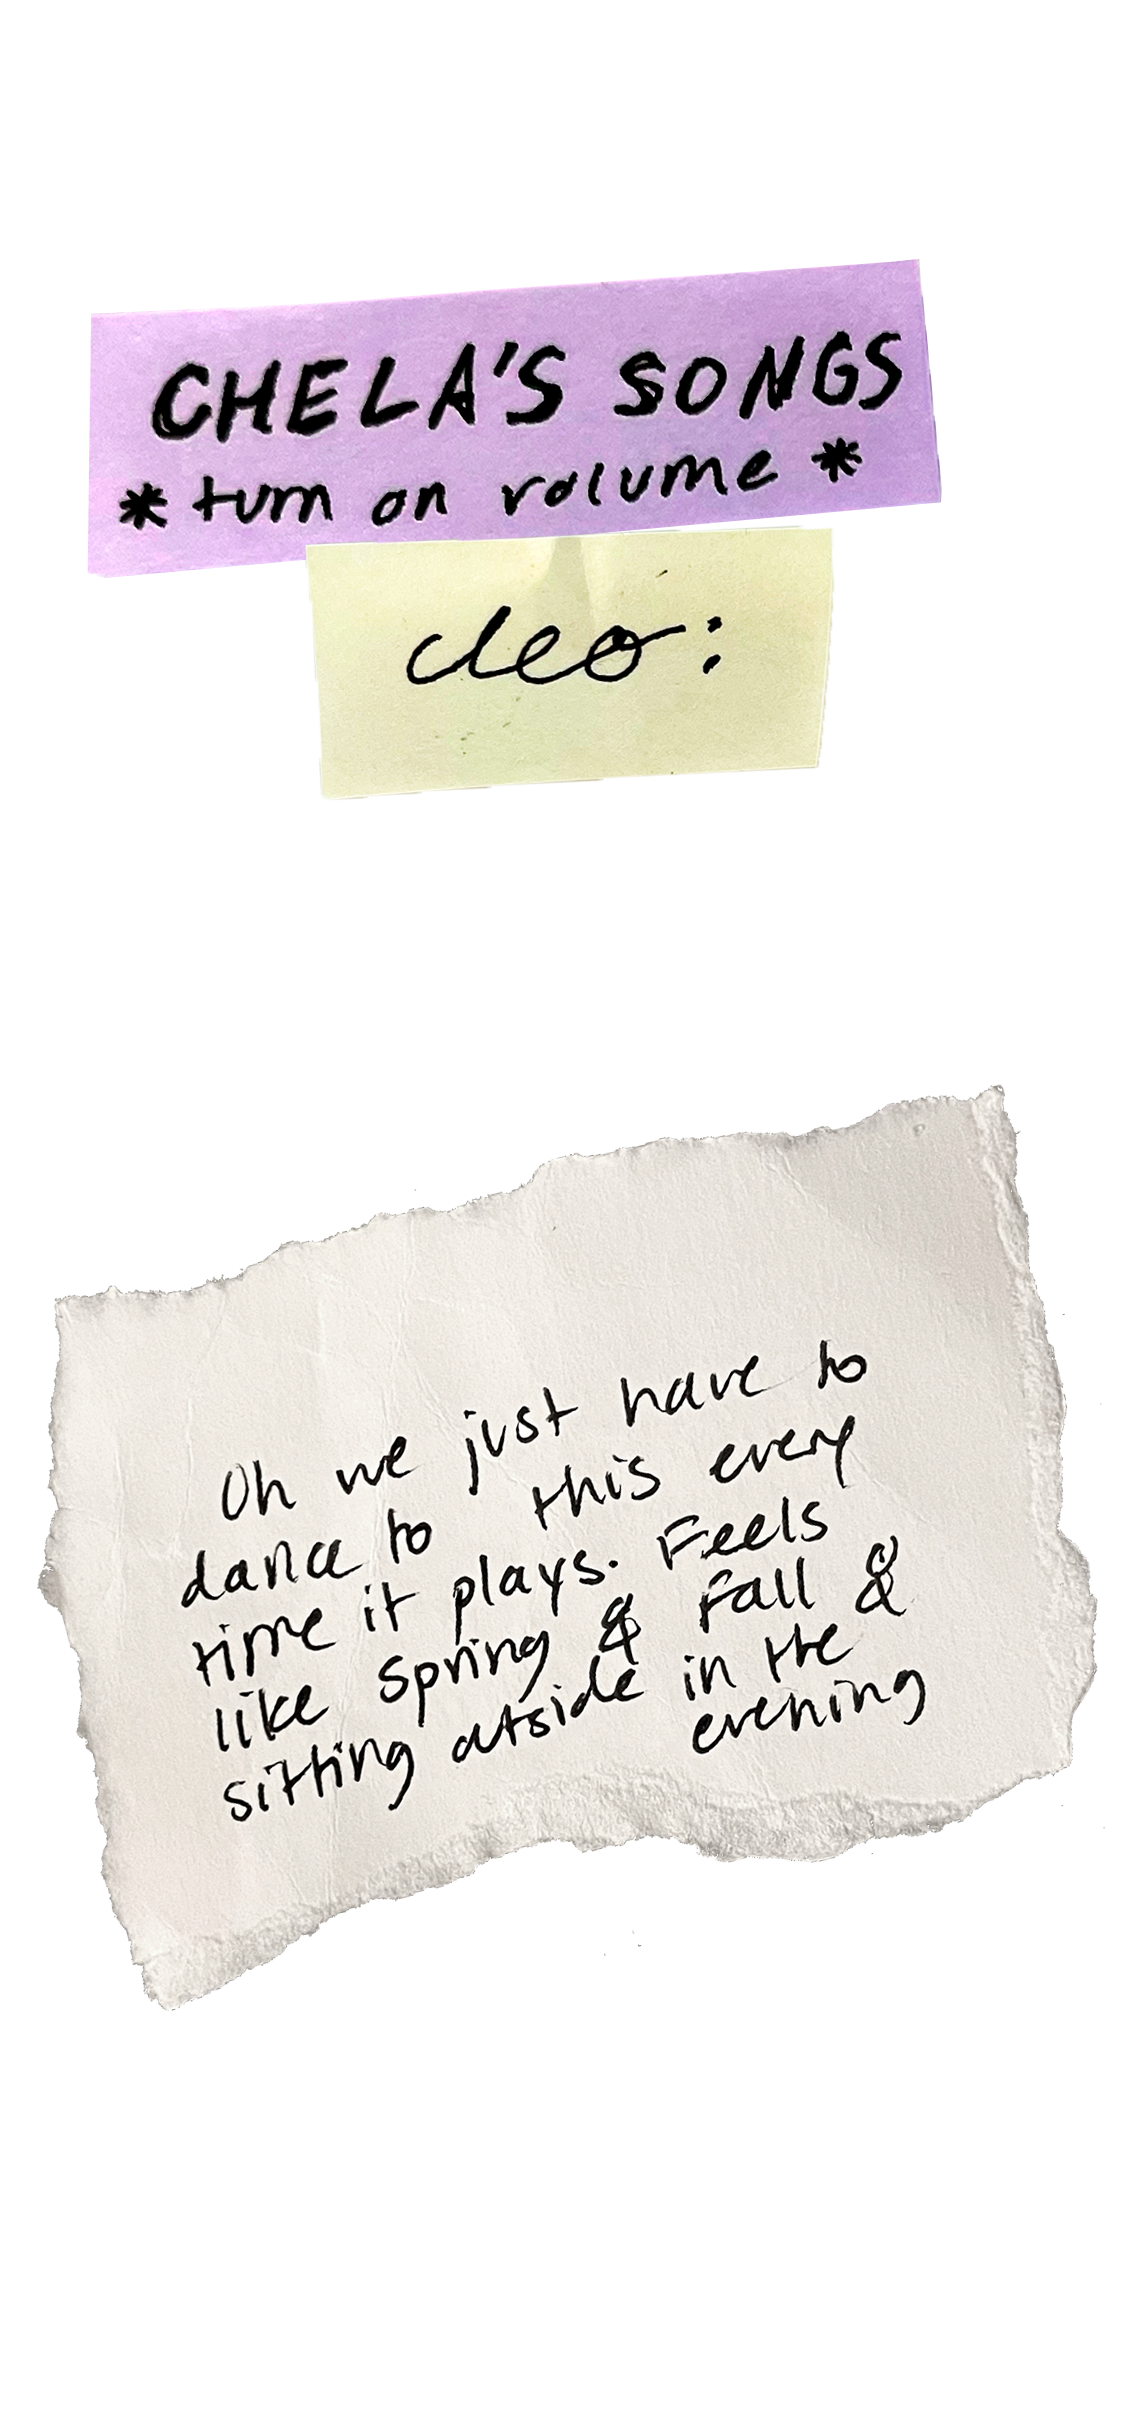 CHELA'S SONGS
* turn on volume *
cleo:
Oh we just have to
dance to this every
time it plays. Feels
like Spring & Fall &
sitting outside in the
evening